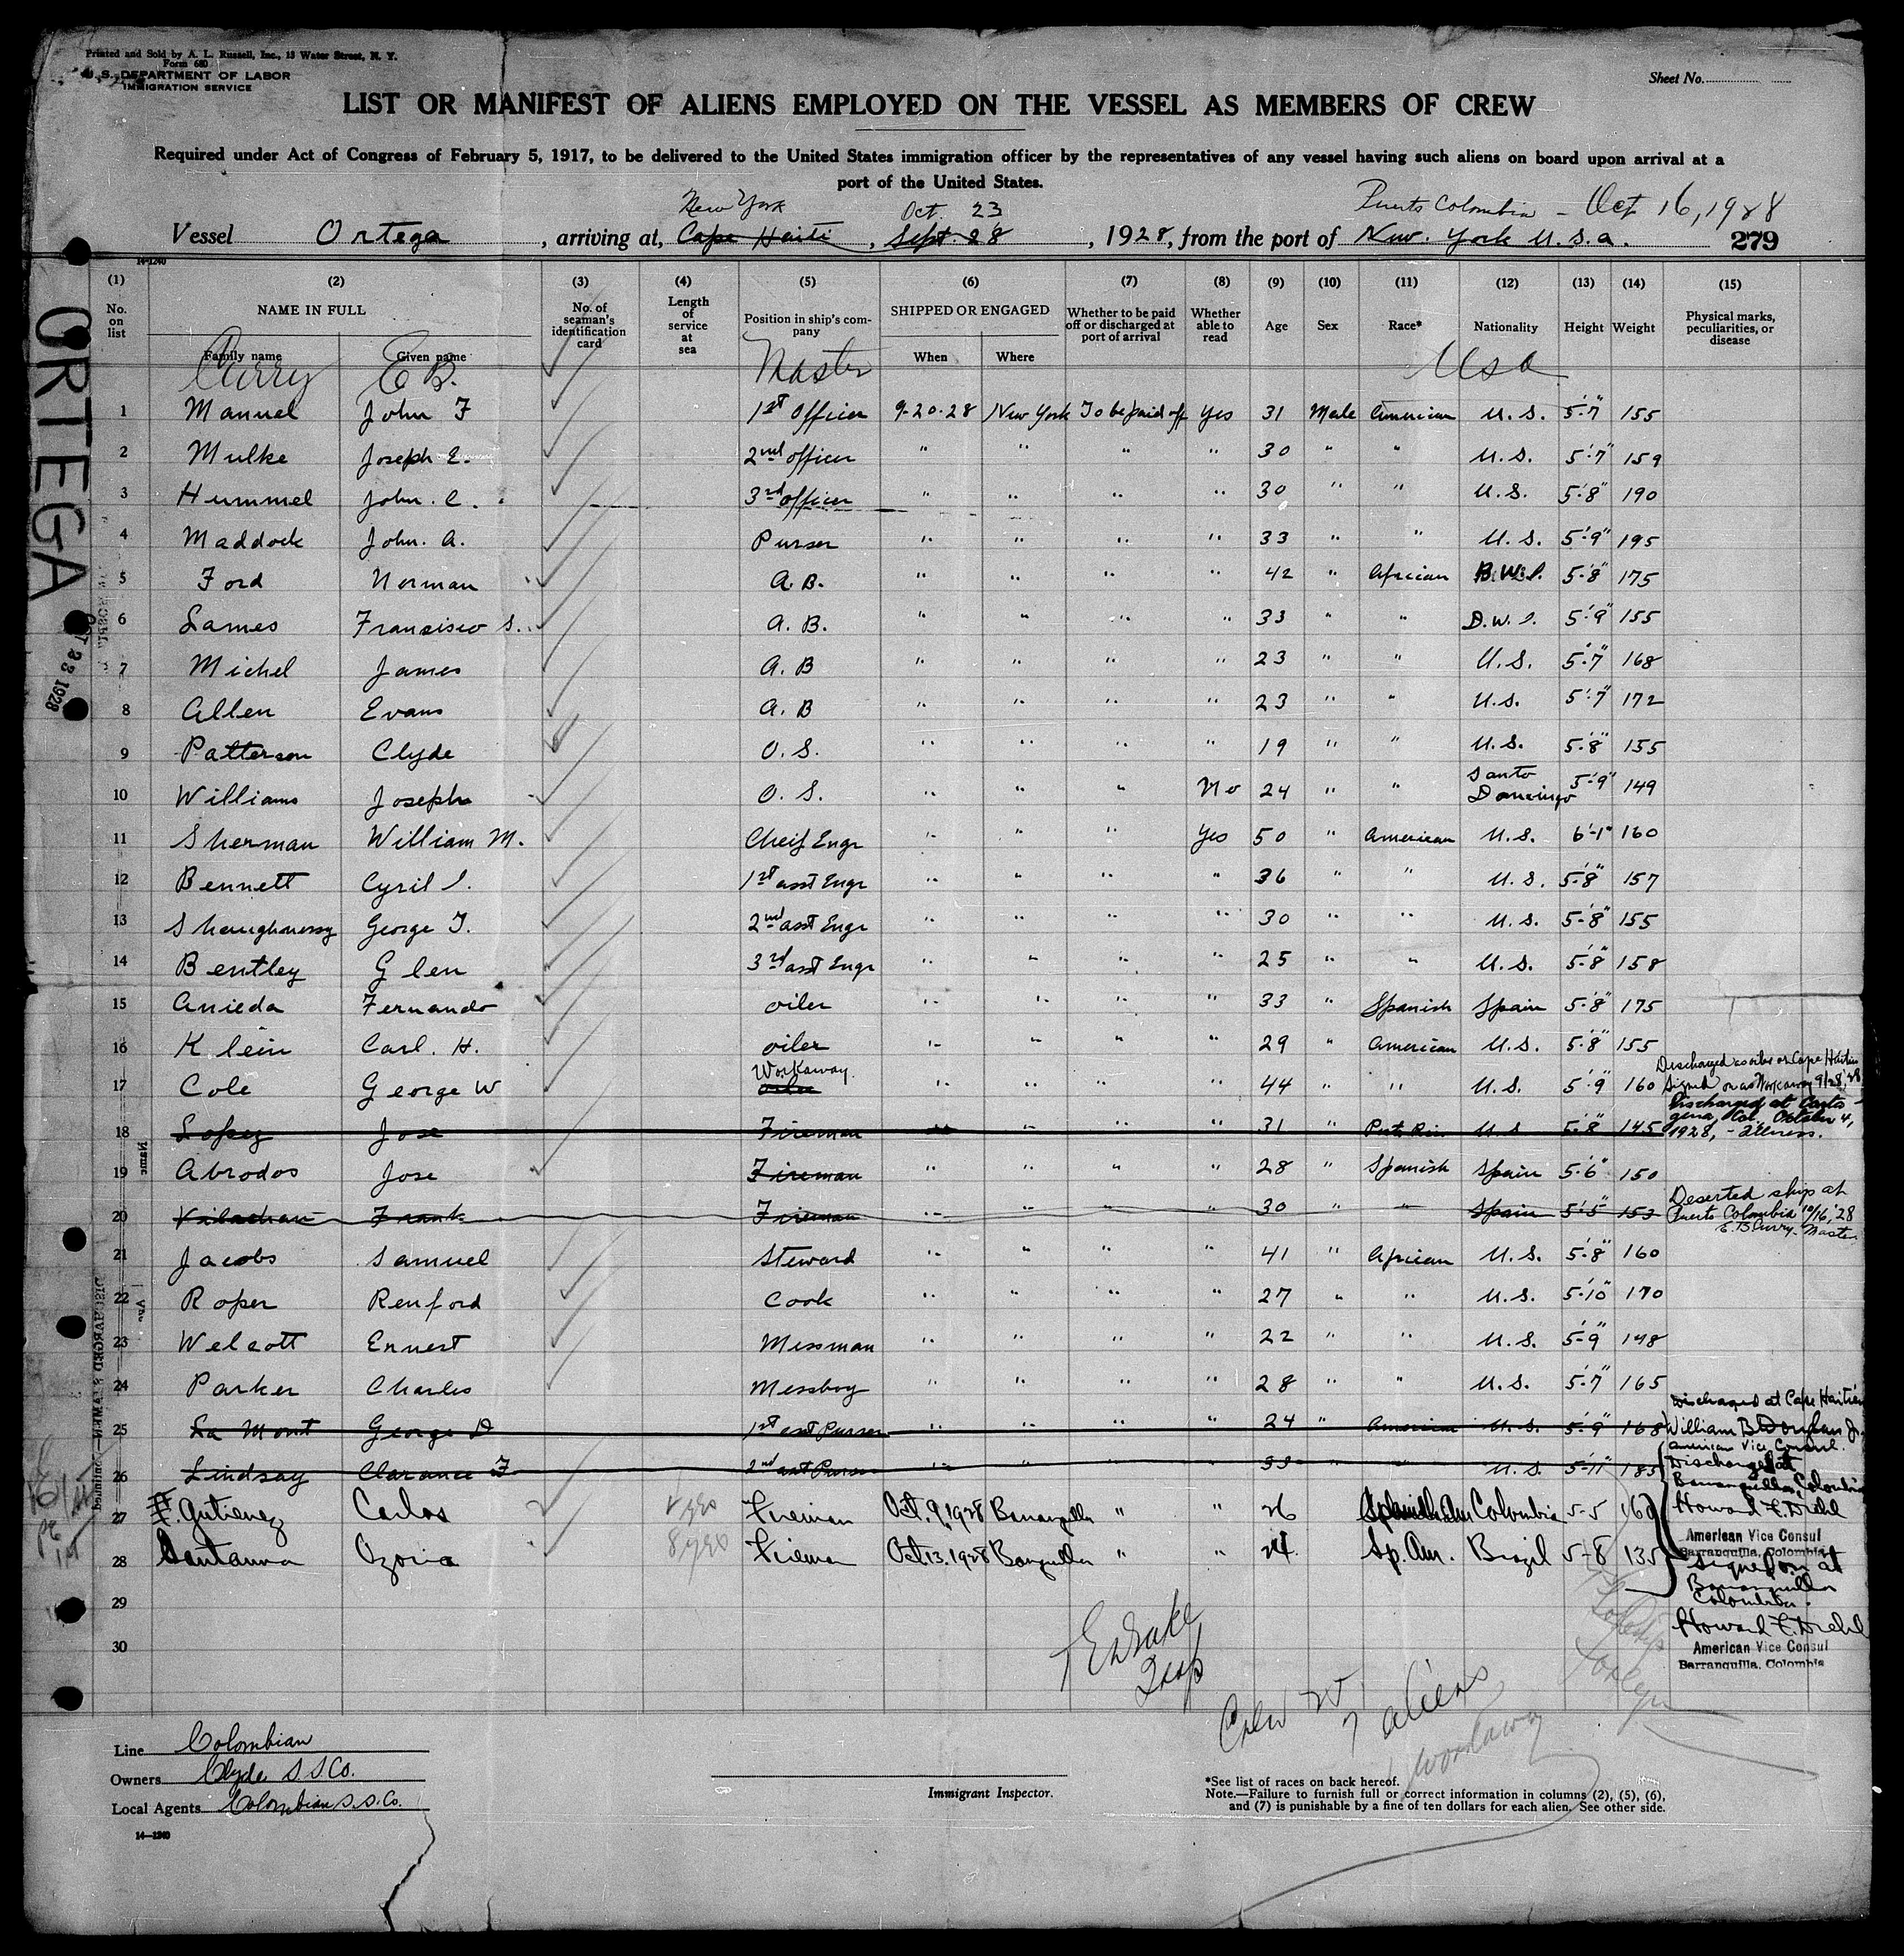 Printed and Sold by A. L. Russell, Inc., 13 Water Street, N. Y.
Form 680
U. S. DEPARTMENT OF LABOR
IMMIGRATION SERVICE
Sheet No.
LIST OR MANIFEST OF ALIENS EMPLOYED ON THE VESSEL AS MEMBERS OF CREW
Required under Act of Congress of February 5, 1917, to be delivered to the United States immigration officer by the representatives of any vessel having such aliens on board upon arrival at a
port of the United States.
New York Oct. 23 Puerto Colombia - Oct 16, 1928
Vessel Ortega, arriving at, Cape Haiti, Sept. 28, 1928, from the port of New. York U.S.A. 279
14-1240
(1) (2) (3) (4) (5) (6) (7) (8) (9) (10) (11) (12) (13) (14) (15)
No. on list NAME IN FULL No. of seaman's identification card Length of service at sea Position in ship's company SHIPPED OR ENGAGED Whether to be paid off or discharged at port of arrival Whether able to read Age Sex Race* Nationality Height Weight Physical marks, peculiarities, or disease
Family name Given name When Where
Curry E B. Master USA
1 Manuel John F 1st Officer 9-20-28 New York To be paid off Yes 31 Male American U.S. 5'-7" 155
2 Mulke Joseph E. 2nd officer " " " " 30 " " U.S. 5'-7" 159
3 Hummel John. C. 3rd officer " " " " 30 " " U.S. 5'-8" 190
4 Maddock John. A. Purser " " " " 33 " " U.S. 5'-9" 195
5 Ford Norman A.B. " " " " 42 " African B.W.I. 5'-8" 175
6 Lames Fransisco S. A.B. " " " " 33 " " D.W.I. 5'-9" 155
7 Michel James A.B " " " " 23 " " U.S. 5'-7" 168
8 Allen Evans A.B " " " " 23 " " U.S. 5'-7" 172
9 Patterson Clyde O.S. " " " " 19 " " U.S. 5'-8" 155
10 Williams Joseph O.S. " " " No 24 " " Santo Domingo 5'-9" 149
11 Sherman William M. Cheif Engr " " " Yes 50 " American U.S. 6'-1" 160
12 Bennett Cyril I. 1st asst Engr " " " " 36 " " U.S. 5'-8" 157
13 Shaughnessy George T. 2nd asst Engr " " " " 30 " " U.S. 5'-8" 155
14 Bentley Glen 3rd asst Engr " " " " 25 " " U.S. 5'-8" 158
15 Anieda Fernando oiler " " " " 33 " Spanish Spain 5'-8" 175
16 Klein Carl. H. oiler " " " " 29 " American U.S. 5'-8" 155
17 Cole George W Workaway oiler " " " " 44 " " U.S. 5'-9" 160 Discharged as oiler at Cape Haitien Signed on as Workaway 9/28/28
18 Lopez Jose Fireman " " " " 31 " U.S 5'-8" 145 Discharged at Cartagena, Col., October 4, 1928, - illness.
19 Abrodos Jose Fireman " " " " 28 " Spanish Spain 5'-6" 150
20 Frank Fireman " " " " 30 " " Spain 5'-5" 153 Deserted ship at Puerto Colombia 10/16/28 E.B Curry - Master
21 Jacobs Samuel Steward " " " " 41 " African U.S. 5'-8" 160
22 Roper Renford Cook " " " " 27 " " U.S. 5'-10" 170
23 Welcott Ernest Messman " " " " 22 " " U.S. 5'-9" 148
24 Parker Charles Messboy " " " " 28 " " U.S. 5'-7" 165
25 La Mont George D 1st asst Purser " " " " 24 " American U.S. 5'-9" 168 Discharged at Cape Haitien William B American Vice Consul.
26 Lindsay Clarance F 2nd asst Purser " " " U.S. 5'-11" 185 Discharged at Barranquilla, Colombia
27 F. Gutierrez Carlos Fireman Oct. 9, 1928 Barranquilla " " 26 Colombia 5-5 160 Howard F. Diehl
American Vice Consul
Barranquilla, Colombia
28 Santanna Ozorio Fireman Oct. 13. 1928 " " 24 Sp. Am. Brazil 5-8 135 Signed on at
Barranquilla
Colombia.
29
30
Howard F. Diehl
American Vice Consul
Barranquilla, Colombia
Insp
Crew
7 aliens
1 workaway
Line Colombian
Owners Clyde S.S Co.
Local Agents Colombian S.S. Co.
14-1240
Immigrant Inspector.
*See list of races on back hereof.
Note.—Failure to furnish full or correct information in columns (2), (5), (6),
and (7) is punishable by a fine of ten dollars for each alien. See other side.
ORTEGA